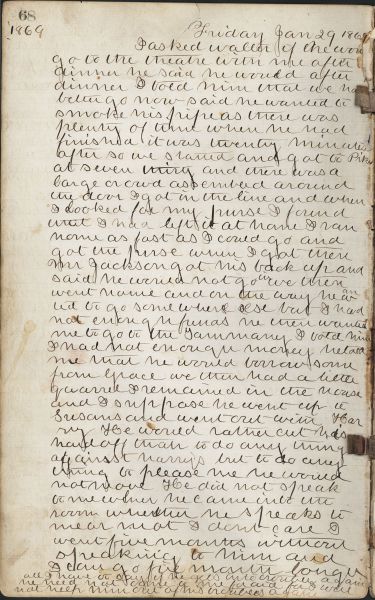 68
1869
Friday Jan 29 1869
I asked walter if he would
go to the theatre with me after
dinner he said he would after
dinner I told him that we had
better go now said he wanted to
smoke his pipe as there was
plenty of time when he had
finished it was twenty minutes
after so we started and got to Pikes
at seven thirty and there was a
large crowd assembled around
the door I got in the line and when
I looked for my purse I found
that I had left it at home I ran
home as fast as I could go and
got the purse when I got there
Mr Jackson got his back up and
said he would not go we then
went home and on the way he wan
ted to go somewhere else but I had
not enough funds he then wanted
me to go to the Tammany I told him
I had not enough money he told
me that he would borrow some
from Grace we then had a little
quarrel I remained in the house
and I suppose he went up to
Susans and went out with Har
ry He would rather cut his
hand off than to do any thing
against harrys but to do any
thing to please me he would
not move He did not speak
to me when he came into the
room whether he speaks to
mear not I dont care I
went five months without
speaking to him and
I can go five month longer
all I have to say if he gets into trouble again
he need not come to me for
not help him out of his troubles again